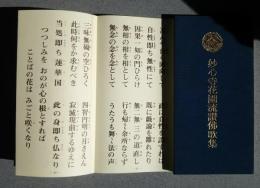 自性即ち無性にて
因果一如の門ひらけ
無相の相を相として
無念の念を念として
三昧無礙の空ひろく
此時何をか求むべき
当処即ち蓮華国
つつしみを おのが心の根とすれば
ことばの花は みごと咲くなり
既に戯論を離れたり
無二無三の道直し
行くも帰るも余所ならず
うたうも舞うも法の声
四智円明の月さえん
寂滅現前するゆえに
此の身即ち仏なり
妙心寺花園流讃佛歌集